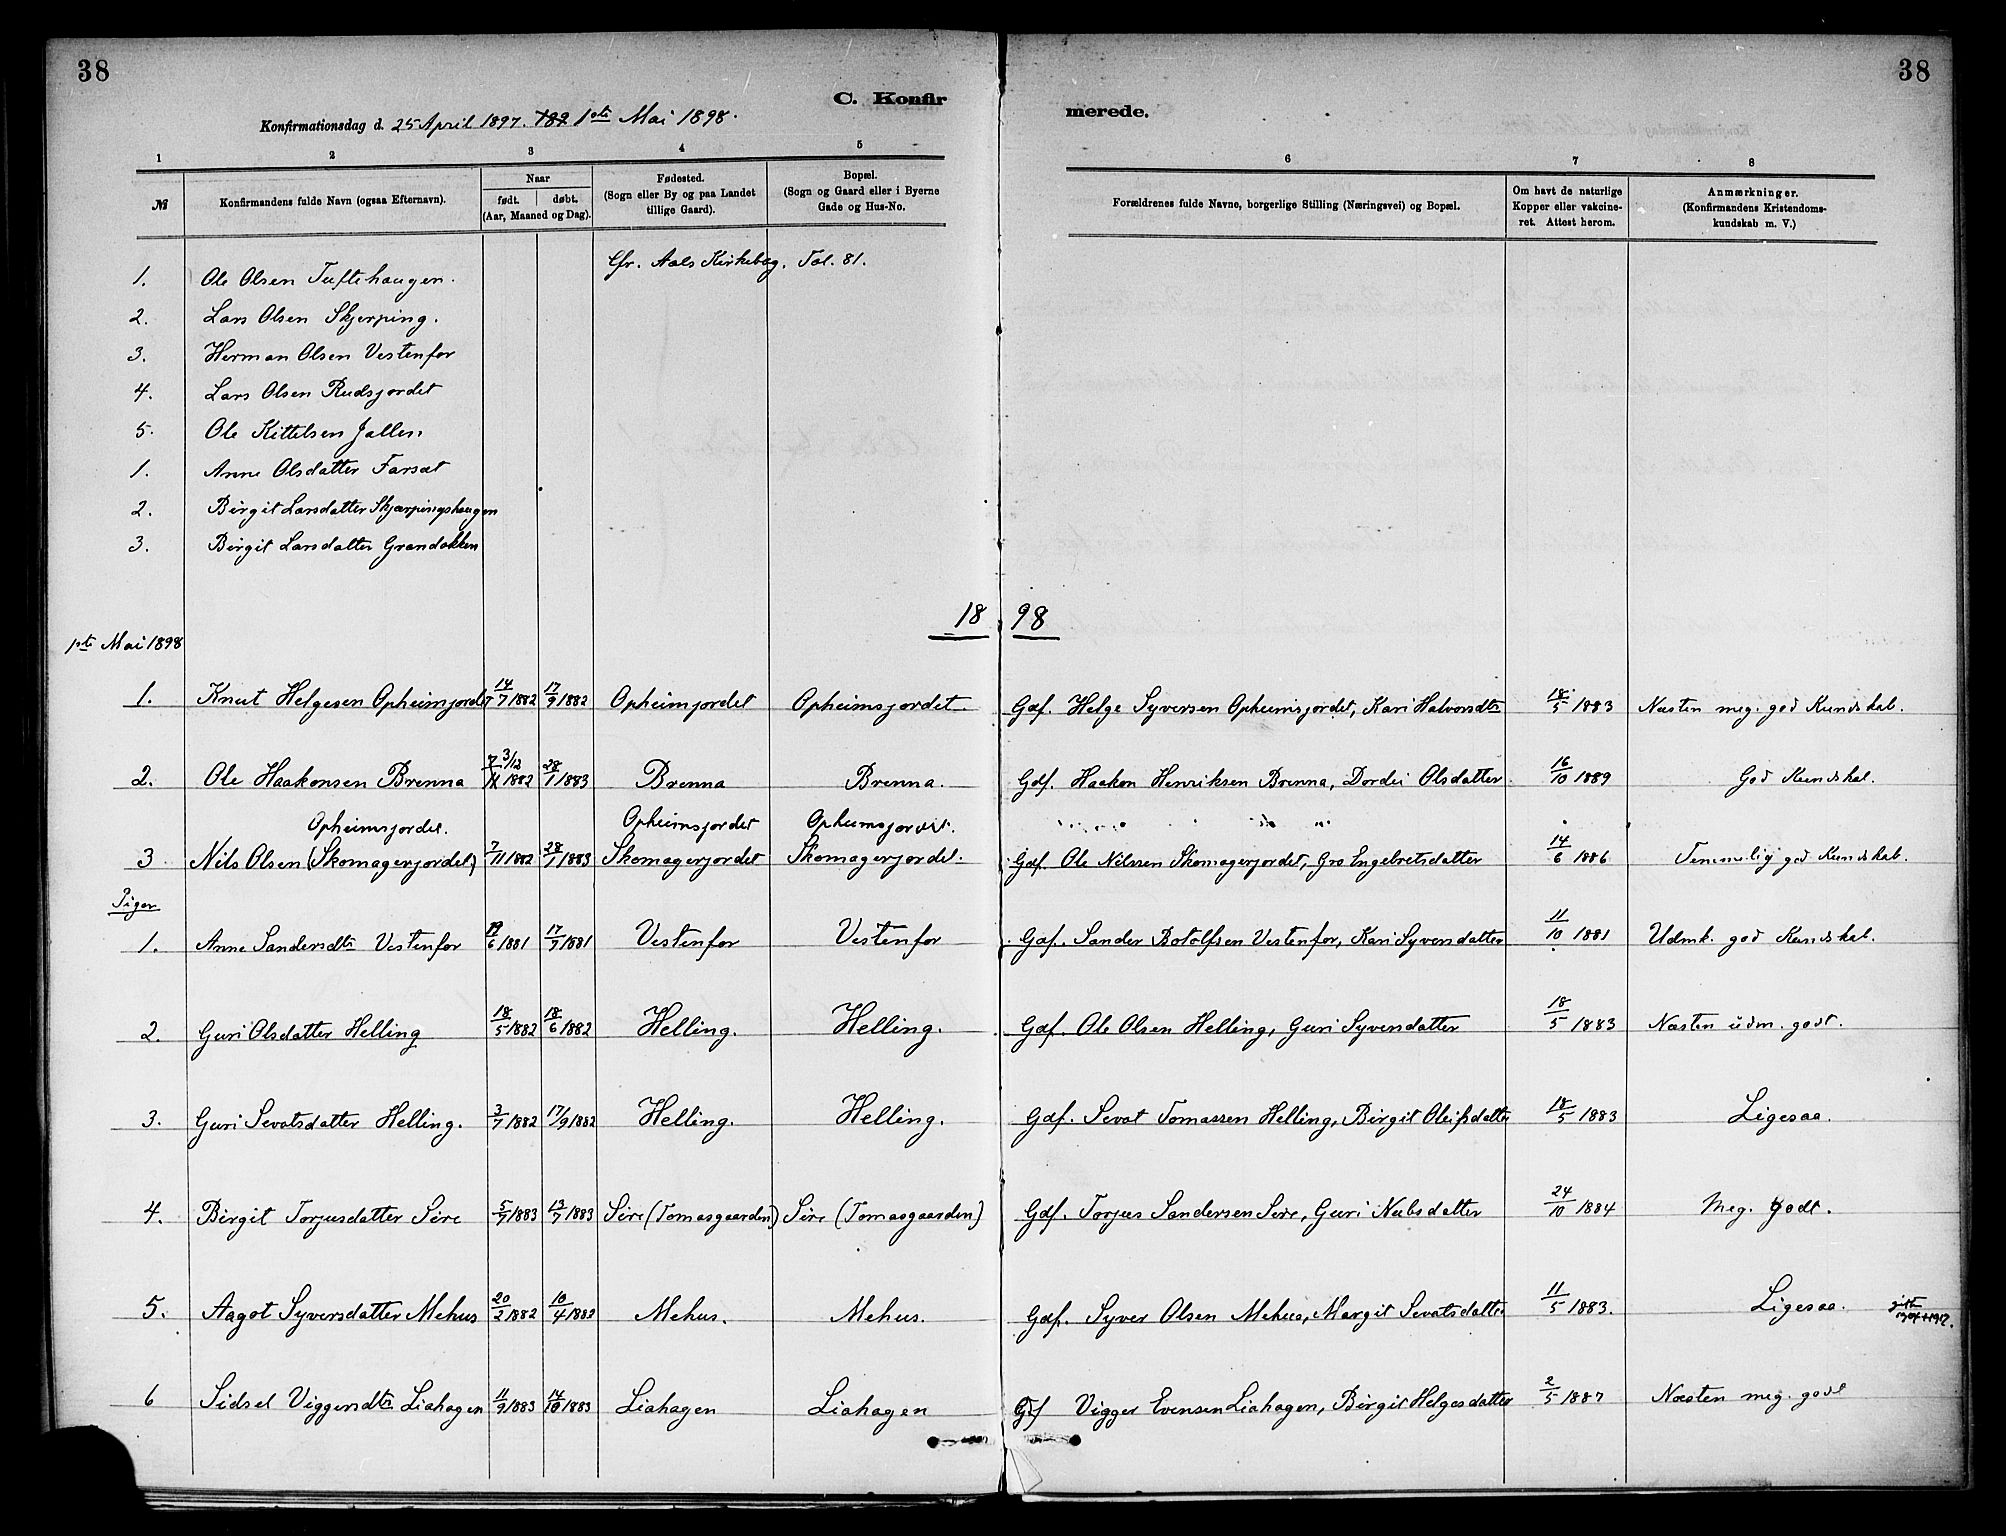 38
38
C. Konfir
merede.
Konfirmationsdag d. 25 April 1897. 1ste Mai 1898.
1 2 3 4 5 6 7 8
№ Konfirmandens fulde Navn (ogsaa Efternavn). Naar født. døbt. (Aar, Maaned og Dag). Fødested. (Sogn eller By og paa Landet tillige Gaard). Bopæl. (Sogn og Gaard eller i Byerne Gade og Hus-No. Forældrenes fulde Navne, borgerlige Stilling (Næringsvei) og Bopæl. Om havt de naturlige Kopper eller vakcineret. Attest herom. Anmærkninger. (Konfirmandens Kristendomskundskab m. V.)
1. Ole Olsen Tuftehaugen. Cfr. Aals Kirkebog. Fol. 81.
2. Lars Olsen Skjerping.
3. Herman Olsen Vestenfor
4. Lars Olsen Rudsjordet
5. Ole Kittelsen Jallen
1. Anne Olsdatter Farsæt
2. Birgit Larsdatter Skjærpingshaugen
3. Birgit Larsdatter Grandokken
18 98
1ste Mai 1898
1. Knut Helgesen Opheimjordet 14/7 1882 17/9 1882 Opheimjordet Opheimsjordet Gdf. Helge Syversen Opheimsjordet, Kari Halvorsdtr 18/5 1883 Næsten meg. god Kundskab.
2. Ole Haakonsen Brenna 3/12 1882 28/1 1883 Brenna Brenna. Gdf. Haakon Henriksen Brenna, Dordei Olsdatter 16/10 1889 God Kundskab.
Opheimsjordet. Opheimsjordet Opheimsjordet.
3 Nils Olsen (Skomagerjordet) 7/11 1882 28/1 1883 Skomagerjordet Skomagerjordet. Gdf. Ole Nilssen Skomagerjordet, Gro Engebretsdatter 14/6 1886 Temmelig god Kundskab.
Piger
1. Anne Sandersdtr Vestenfor 6 1881 17/9 1881 Vestenfor Vestenfor Gdf. Sander Botolfsen Vestenfor, Kari Syversdatter 11/10 1881 Udmk. god Kundskab.
2. Guri Olsdatter Helling 18/5 1882 18/6 1882 Helling. Helling. Gdf. Ole Olsen Helling, Guri Syversdatter 18/5 1883 Næsten udm. godt.
3. Guri Sevatsdatter Helling. 3/7 1882 17/9 1882 Helling. Helling. Gdf. Sevat Tomassen Helling, Birgit Oleifsdatter 18/5 1883 Ligesaa.
4. Birgit Torjusdatter Sire 5/7 1883 13/7 1883 Sire (Tomasgaarden) Sire (Tomasgaarden) Gdf. Torjus Sandersen Sire, Guri Nubsdatter 24/10 1884 Meg. godt.
5. Aagot Syversdatter Mehus 20/2 1882 10/4 1882 Mehus. Mehus. Gdf. Syver Olsen Mehus, Margit Sevatsdatter 11/5 1883. Ligesaa.
6 Sidsel Viggersdtr Liahagen 11/9 1883 14/10 1883 Liahagen Liahagen Gdf Vigger Evensen Liahagen, Birgit Helgesdatter 2/5 1887 Næsten meg. godt